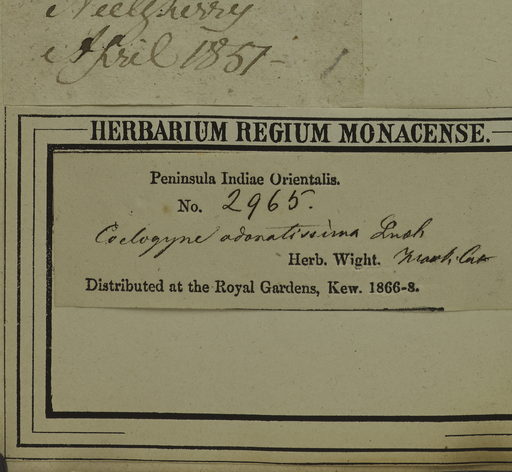 Neelgherry
April 1851
HERBARIUM REGIUM MONACENSE.
Peninsula Indiae Orientalis.
No. 2965.
Coelogyne odoratissima Lindl
Herb. Wight.
Distributed at the Royal Gardens, Kew. 1866-8.